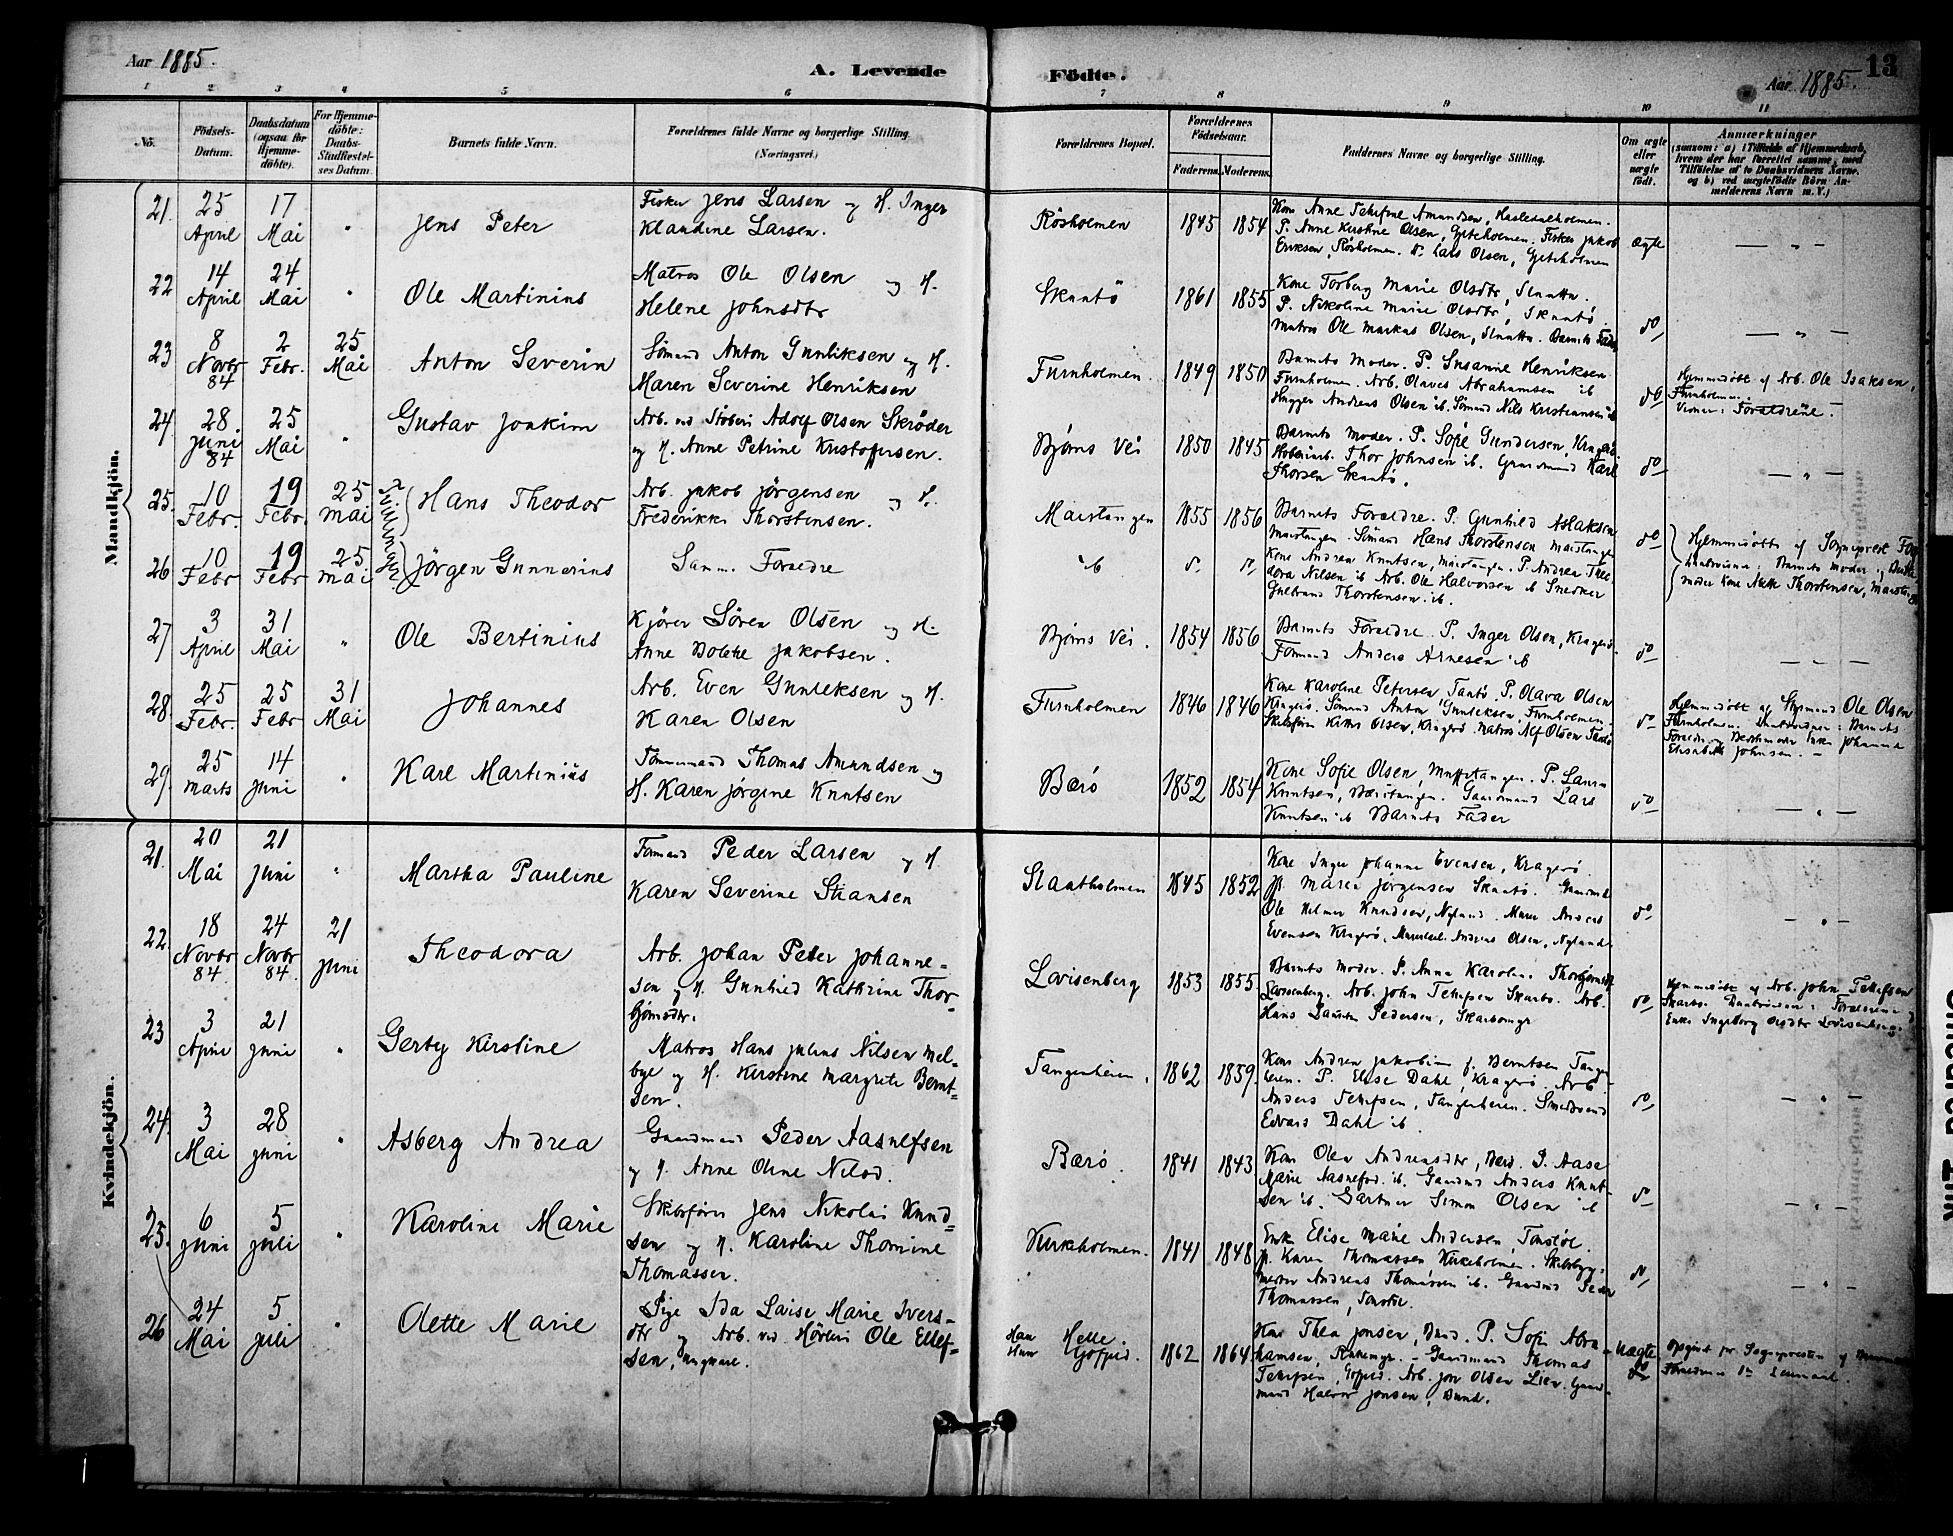 Aar 1885.
A. Levende
Födte.
Aar 1885.
13
1 2 3 4 5 6 7 8 9 10 11
No.
Födsels-
Datum.
Daabsdatum
(ogsaa for
Hjemme-
döbte).
For Hjemme-
döbte:
Daabs-
Stadfæstel-
ses Datum.
Barnets fulde Navn.
Forældrenes fulde Navne og borgerlige Stilling.
(Næringsvei.)
Forældrenes Bopæl.
Forældrenes
Födselsaar.
Faderens. Moderens.
Faddernes Navne og borgerlige Stilling.
Om ægte
eller
uægte
födt.
Anmærkninger
(saasom: a) i Tilfælde af Hjemmedaab,
hvem der har forrettet samme, med
Tilföielse af to Daabsvidners Navne,
og b) ved uægtefödte Börn An-
melderens Navn m. V.)
Mandkjön.
21. 25 April 17 Mai " Jens Peter
Fisker Jens Larsen og H. Inger
Klaudine Larsen.
Rösholmen 1845 1854
Kone Anne Amundsen,
P. Anne Kirstine Olsen, Gjeteholmen. Fisker Jakob
Eriksen, Rösholmen. Lars Olsen, Gjeteholmen
Ægte — " —
22 14 April 24 Mai " Ole Martinius
Matros Ole Olsen og H.
Helene Johnsdtr
Skaatö 1861 1855
Kone Torborg Marie Olsdtr,
P. Nikoline Marie Olsdtr, Skaatö
Matros Ole Markus Olsen, Barnets Fader
do — " —
23 8 Novbr 84 2 Febr. 25 Mai Anton Severin
Sömand Anton Gunleksen og H.
Maren Severine Henriksen
Furuholmen. 1849 1850
Barnets Moder. P. Susanne Henriksen
Furuholmen. Arb. Olaves Abrahamsen ib
Andreas Olsen ib. Sömand Nils Kristiansen ib
do
Hjemmedöbt af Arb. Ole Isaksen,
Furuholmen.
Vidner: Forældrene.
24. 28. Juni 84 25 Mai " Gustav Joakim
Arb. ved Støberi Adolf Olsen Skrøder
og H. Anne Petrine Kristoffersen.
Bjørns Vei 1850 1845
Barnets Moder. P. Sofie Gundersen, Kragerö.
Thor Johnsen ib. Gaardmand Karl
Thorsen Skaatö.
do — " —
25. 10 Febr. 19 Febr. 25 Mai Tvillinger Hans Theodor
Arb. Jakob Jörgensen og H.
Frederikke Thorstensen.
Maistangen 1855 1856
Barnets Forældre. P. Gunhild Aslaksen
Maistangen. Sömand Hans Thorstensen Maistangen
do
Hjemmedöbte af Sogneprest
Barnets Moder og
Moder Kone Thorstensen, Maistangen
26 10 Febr 19 Febr 25. Mai Jörgen Gunnerius
Samme Forældre
ib do do
Kone Andrea Knutsen, Maistangen. P. Andrea Theo-
dora Nilsen ib Arb. Ole Halvorsen ib Snedker
Gulbrand Thorstensen ib.
27 3 April 31 Mai " Ole Bertinius
Kjörer Sören Olsen og H.
Anne Jakobsen.
Bjørns Vei. 1854 1856
Barnets Forældre. P. Inger Olsen, Kragerö.
Formand Anders Arnesen ib
do — " —
28. 25 Febr. 25 Febr 31 Mai Johannes
Arb. Even Gunleksen og H.
Karen Olsen
Furuholmen 1846 1846
Kone Karoline Petersen Taatö. P. Olava Olsen
Kragerö. Sömand Anton Gunleksen, Furuholmen.
Olsen, Kragerö. Matros Alf Olsen Taatö
do
Hjemmedöbt af Styrmand Ole Olsen
Furuholmen. Barnets
Forældre og Enke Johanne
Elisabeth Johnsen.
29. 25 Marts 14 Juni " Karl Martinius
Tömmermand Thomas Amundsen og
H. Karen Jörgine Knutsen
Bærö 1852 1854
Kone Sofie Olsen,
Knutsen, Gaardmand Lars
Knutsen ib Barnets Fader
do — " —
Kvindekjön.
21. 20 Mai 21 Juni " Martha Pauline
Formand Peder Larsen og H.
Karen Severine Stiansen
Slaatholmen 1845 1852
Kone Inger Johanne Evensen, Kragerö.
P. Maren Jörgensen Skaatö.
Ole Hilmer Knudsen, Nylund. Murer Anders
Evensen Kragerö, Andreas Olsen, Nylund.
do — " —
22. 18 Novbr 84 24 Novbr 84. 21 Juni Theodora
Arb. Johan Peder Johanne-
sen og H. Gunhild Kathrine Thor-
björnsdtr.
Lovisenberg 1853 1855.
Barnets Moder. P. Anna Karoline Thorbjörnsdtr
Lovisenberg. Arb. John Tellefsen Skarbo. Arb.
Hans Pedersen, Skarbomyr
do
Hjemmedöbt af Arb. John Tellefsen
Skarbo. Forældrene og
Enke Ingeborg Olsdtr Lovisenberg.
23 3 April 21 Juni " Gerby Kirstine
Matros Hans Julius Nilsen Mel-
bye og H. Kirstine Margrete Bernt-
sen.
Tangenheien. 1862 1859.
Kone Andrea Jakobine f. Berntsen Tangen-
heien. P. Elise Dahl, Kragerö. Arb.
Anders Tellefsen, Tangenheien.
Edvard Dahl ib.
do — " —
24. 3 Mai 28 Juni " Asberg Andrea
Gaardmand Peder Aasnefsen
og H. Anne Oline Nilsd.
Bærö. 1841 1843
Kone Olea Andreasdtr, P. Aase
Marie Aasnefsd. ib. Gaardmd Anders Knut-
sen ib. Gartner Simon Olsen ib
do — " —
25. 6 Juni 5 Juli " Karoline Marie
Skibsförer Jens Nikolai Knud-
sen og H. Karoline Thomine
Thomassen.
Kirkeholmen. 1841 1848
Enke Elise Marie Andersen, Tonstöl.
P. Karen Thomassen Kirkeholmen. Skibsbyg-
mester Andreas Thomassen ib. Gaardmd Peder
Thomassen, Tonstöl.
do — " —
26 24 Mai 5 Juli " Olette Marie
Pige Ida Laise Marie Ivers-
dtr og Arb. ved Hövleri Ole Ellef-
sen, Ungkarl.
Han Helle.
Hun 1862 1864.
Kone Thea Jensen, P. Sofie Abra-
hamsen, Gaardmand Thomas
Tellefsen, Arb. Jon Olsen Lien. Gaard-
mand Halvor Jensen,
Uægte do
Opgivet for Sognepresten af
Forældrene